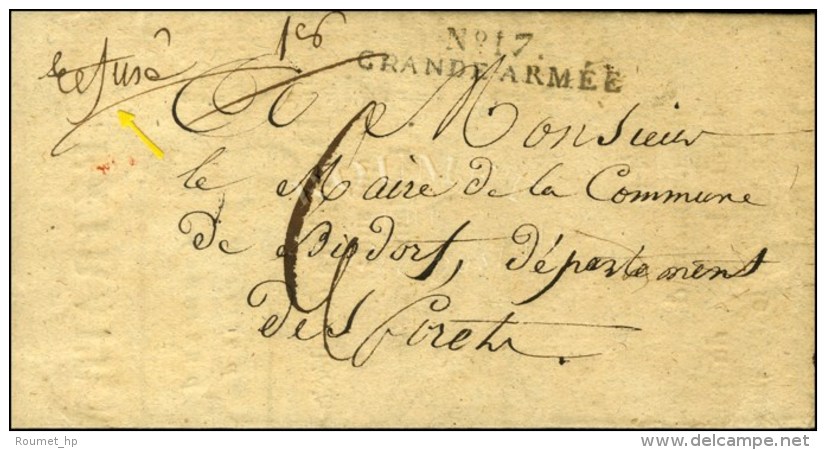 refusé
No. 17.
GRANDE ARMÉE
A Monsieur
le Maire de la Commune
De Bisdorf, département
des Forets.
Roumet_hp
www.delcampe.net